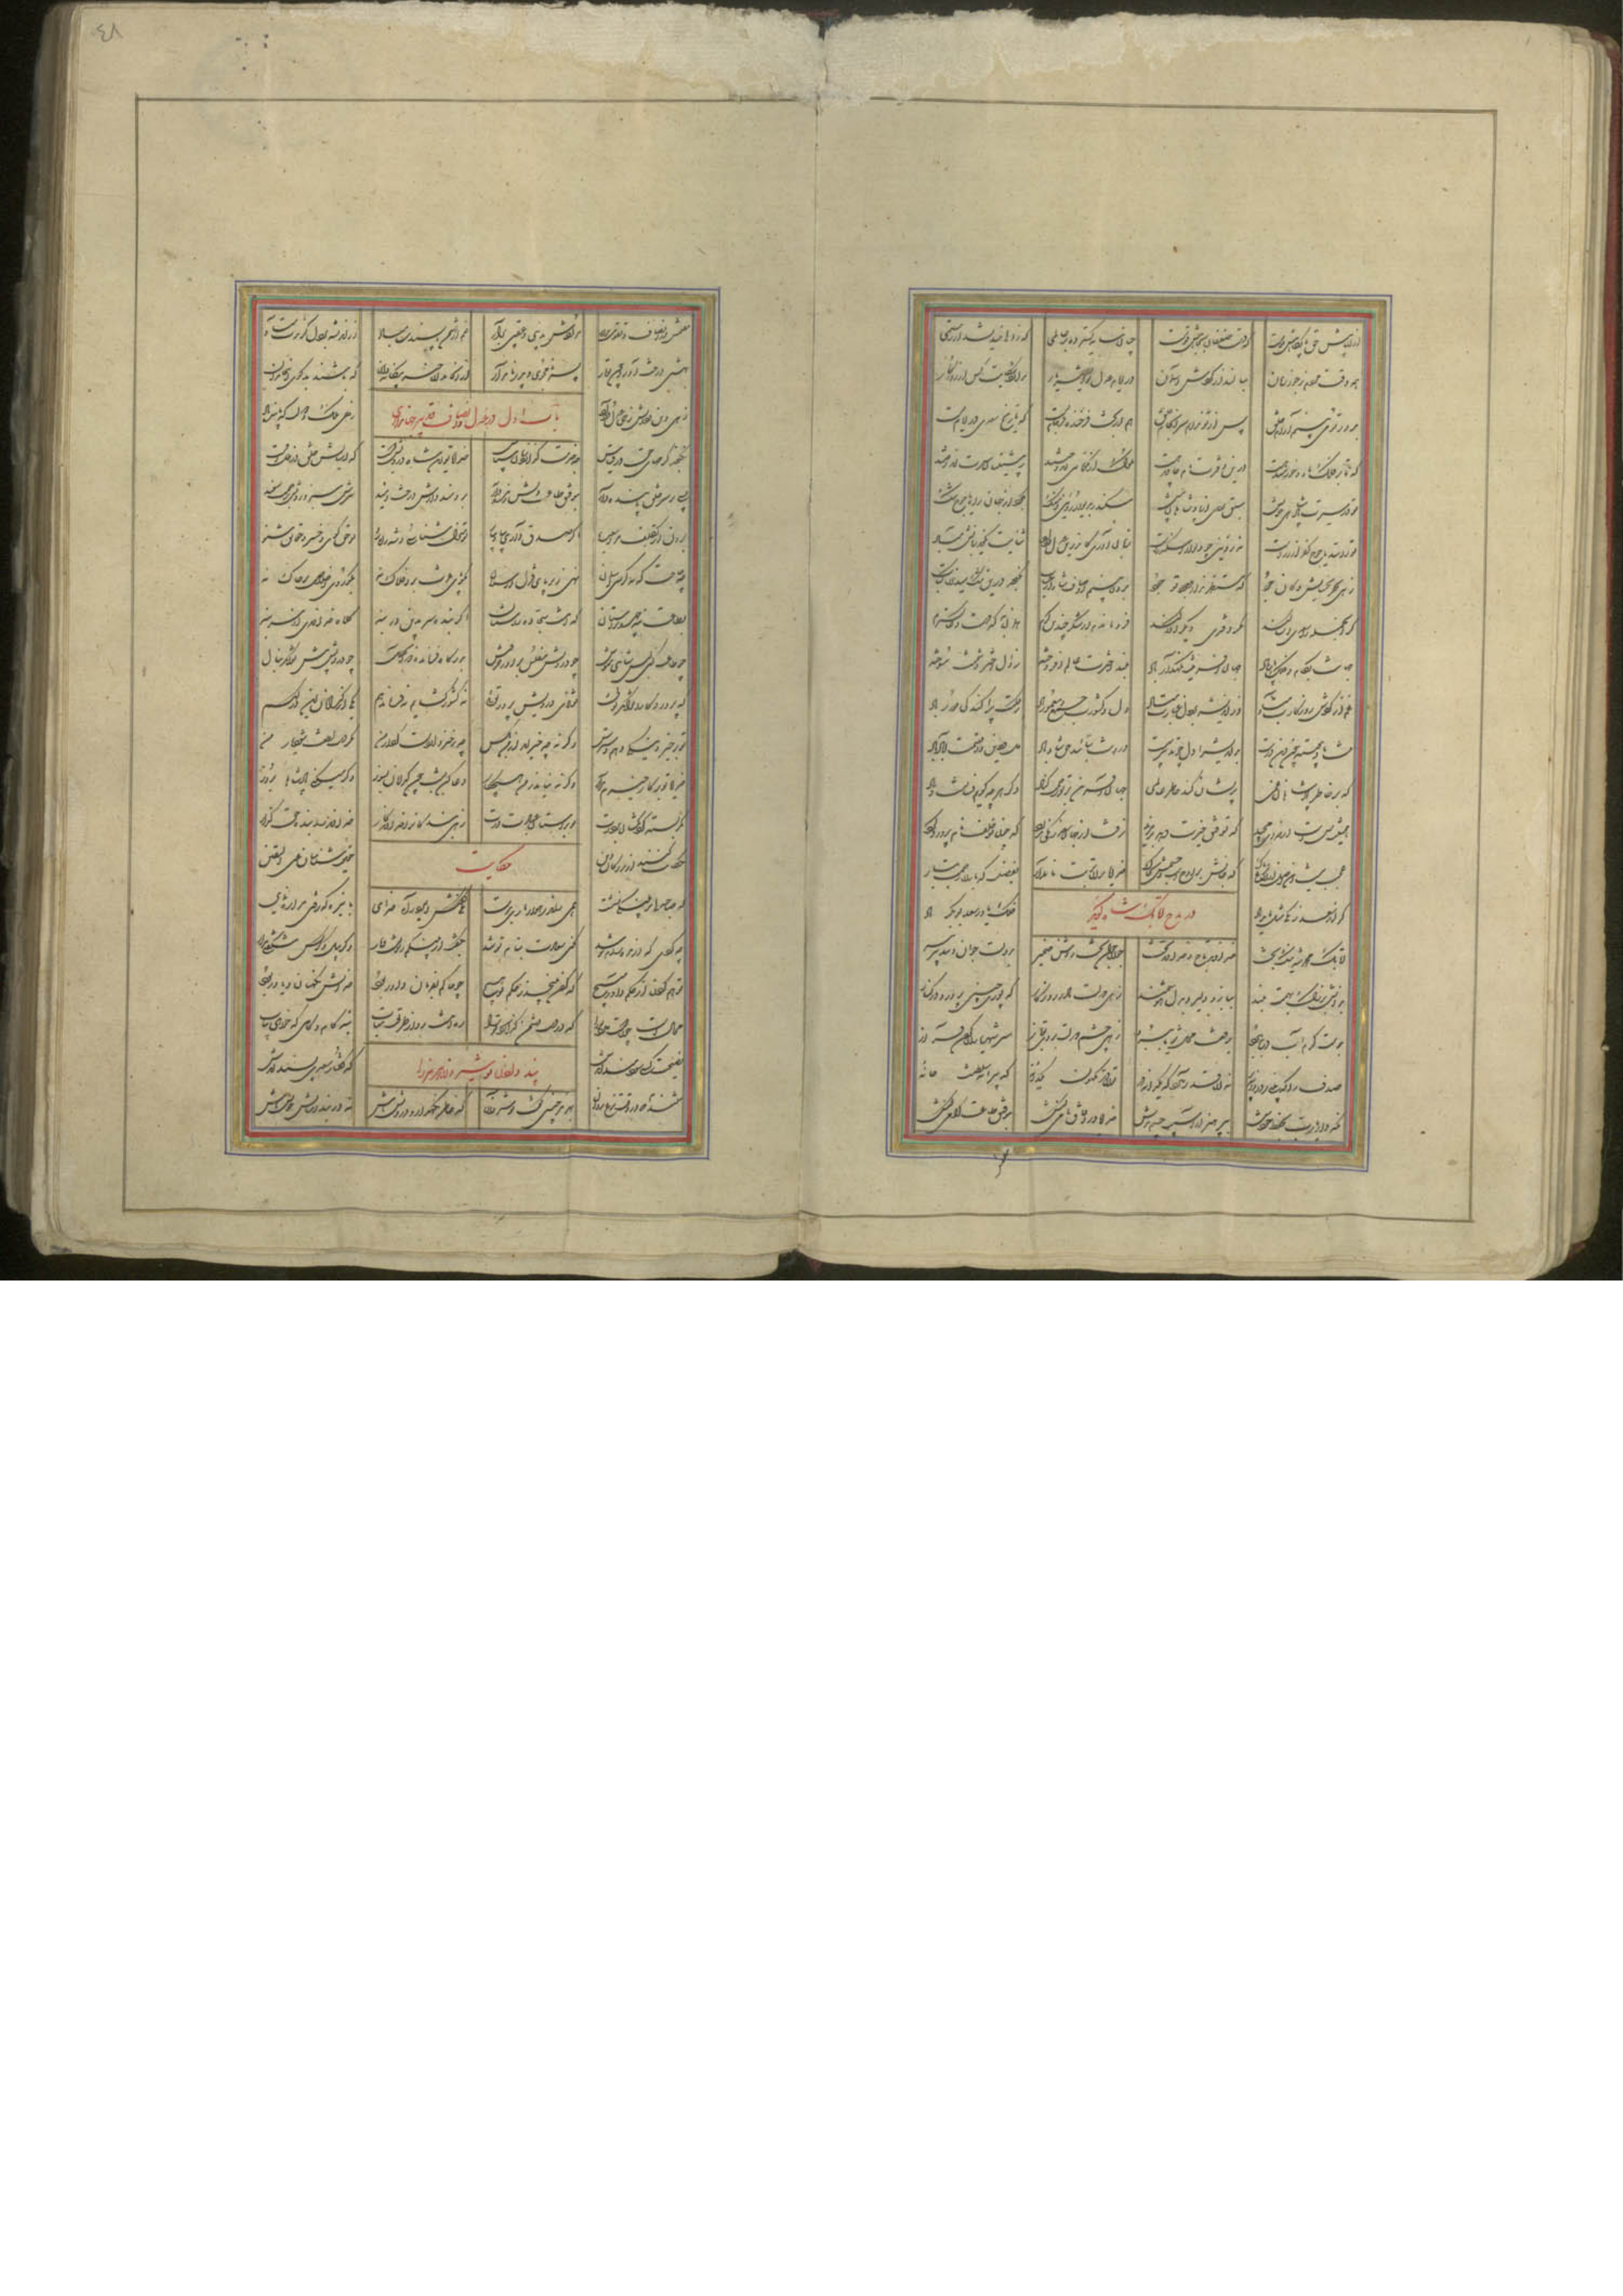 ازان پیش حق پایگاهش قویست که دست ضعیفان بجاهش قویست چنان سایه گسترده بر عالمی که زالی نیندیشد از رستمی
همه وقت مردم ز جور زمان بنالند از گردش آسمان در ایام عدل تو ای شهریار ندارد شکایت کس از روزگار
بدور تو می بینم آرام خلق پس از تو ندانم سرانجام خلق هم از بخت فرخنده فرجام تست که تاریخ سعدی در ایام تست
که تا بر فلک ماه و خورشید هست درین دفترت نام جاوید هست ملوک ار نکونامی اندوختند ز پیشینگان سیرت آموختند
تو در سیرت پادشاهی خویش سبق بردی از پادشاهان پیش سکندر بدیوار رویین و سنگ بکرد از جهان راه یاجوج تنگ
ترا سد یاجوج کفر از زرست نه رویین چو دیوار اسکندرست زبان آوری کاندرین عدل و داد ثنایت نگوید زبانش مباد
زهی بحر بخشایش و کان جود که مستظهرند از وجودت وجود برون بینم اوصاف شاه از حساب نگنجد درین تنگ میدان کتاب
گر آن جمله را سعدی املا کند مگر دفتری دیگر انشا کند فرو ماندم از شکر چندین کرم همان به که دست دعا گسترم
جهانت بکام و فلک یار باد جهان آفرینت نگهدار باد بلند اخترت عالم افروخته زوال اختر دشمنت سوخته
غم از گردش روزگارت مباد وز اندیشه بر دل غبارت مباد دل و کشورت جمع و معمور باد ز ملکت پراکندگی دور باد
بداندیش را دل چو تدبیر سست درونت بتأیید حق شاد باد دل و دین و اقلیمت آباد باد
که بر خاطر پادشاهان غمی پریشان کند خاطر عالمی جهان آفرین بر تو رحمت کناد دگر هرچه گویم فسانست و باد
همینت بس از کردگار مجید که توفیق خیرت بود بر مزید نرفت از جهان سعد زنگی بدرد که چون تو خلف نامبردار کرد
عجب نیست این فرع ازان اصل پاک که جانش بر اوجست و جسمش بخاک خدایا بر آن تربت نامدار بفضلت که باران رحمت ببار
گر از سعد زنگی مثل ماند یاد فلک یاور سعد بوبکر باد
در مدح اتابک شاه
اتابک محمد شه نیکبخت خداوند تاج و خداوند تخت جوان جوان بخت روشن ضمیر بدولت جوان و بتدبیر پیر
بدانش بزرگ و بهمت بلند ببازو دلیر و بدل هوشمند زهی دولت مادر روزگار که پوری چنین پرورد در کنار
بدست کرم آب دریا ببرد برفعت محل ثریا ببرد زهی چشم دولت بروی تو باز سر شهریاران گردن فراز
صدف را که بینی ز دردانه پر نه آن قدر دارد که یکدانه در تو آن در مکنون یکدانه که پیرایه سلطنت خانه
نگه دار یارب بچشم خودش بپرهیز از آسیب چشم بدش خدایا در آفاق نامی کنش بتوفیق طاعت گرامی کنش
٤٨
مقیمش در انصاف و تقوی بدار مرادش بدنیی و عقبی برآر غم از دشمن ناپسندت مباد
بهشتی درخت آورد چون تو بار پسر نامجوی و پدر نامدار ازان خاندان خیر بیگانه دان که باشند بدگوی این خاندان
زهی دین و دانش زهی عدل و داد زهی ملک و دولت که پاینده باد
باب اول در عدل و انصاف و تدبیر جهانداری
نگنجد کرمهای حق در قیاس چه خدمت گزارد زبان سپاس خدایا تو این شاه درویش دوست که آسایش خلق در ظل اوست
بسی بر سر خلق پاینده دار بتوفیق طاعت دلش زنده دار برومند دارش درخت امید سرش سبز و رویش برحمت سفید
براه تکلف مرو سعدیا اگر صدق داری بیار و بیا تو منزل شناسی و شه راهرو تو حق گوی و خسرو حقایق شنو
چه حاجت که نه کرسی آسمان نهی زیر پای قزل ارسلان مگو پای عزت بر افلاک نه بگو روی اخلاص بر خاک نه
بطاعت بنه چهره بر آستان که اینست سجاده راستان اگر بنده سر برین در بنه کلاه خداوندی از سر بنه
چو طاعت کنی لبس شاهی مپوش چو درویش مخلص برآور خروش بدرگاه فرمانده ذوالجلال چو درویش پیش توانگر بنال
که پروردگارا توانگر تویی توانای درویش پرور تویی نه کشور گشایم نه فرماندهم یکی از گدایان این درگهم
تو بر خیر و نیکی دهم دسترس وگرنه چه خیر آید از من بکس چه برخیزد از دست کردار من مگر دست لطفت شود یار من
خدایا تو بر کار خیرم بدار وگرنه نیاید ز من هیچ کار دعا کن بشب چون گدایان بسوز وگر میکنی پادشاهی بروز
کمر بسته گردنکشان بر درت تو بر آستان عبادت سرت زهی بندگان را خداوندگار خداوند را بنده حق گزار
حکایت کنند از بزرگان دین حقیقت شناسان عین الیقین
حکایت
که صاحبدلی بر پلنگی نشست همی راند رهوار و ماری بدست یکی گفتش ای مرد راه خدای بدین ره که رفتی مرا ره نمای
چه کردی که درنده رام تو شد نگین سعادت بنام تو شد بگفت ار پلنگم زبونست و مار وگر پیل و کرکس شگفتی مدار
تو هم گردن از حکم داور مپیچ که گردن نپیچد ز حکم تو هیچ چو حاکم بفرمان داور بود خدایش نگهبان و یاور بود
محالست چون دوست دارد ترا که در دست دشمن گذارد ترا ره اینست رو از طریقت متاب بنه گام و کامی که خواهی بیاب
نصیحت کسی سودمند آیدش که گفتار سعدی پسند آیدش
پند دادن نوشیروان هرمز را
شنیدم که در وقت نزع روان بهرمز چنین گفت نوشیروان که خاطر نگهدار درویش باش نه در بند آسایش خویش باش